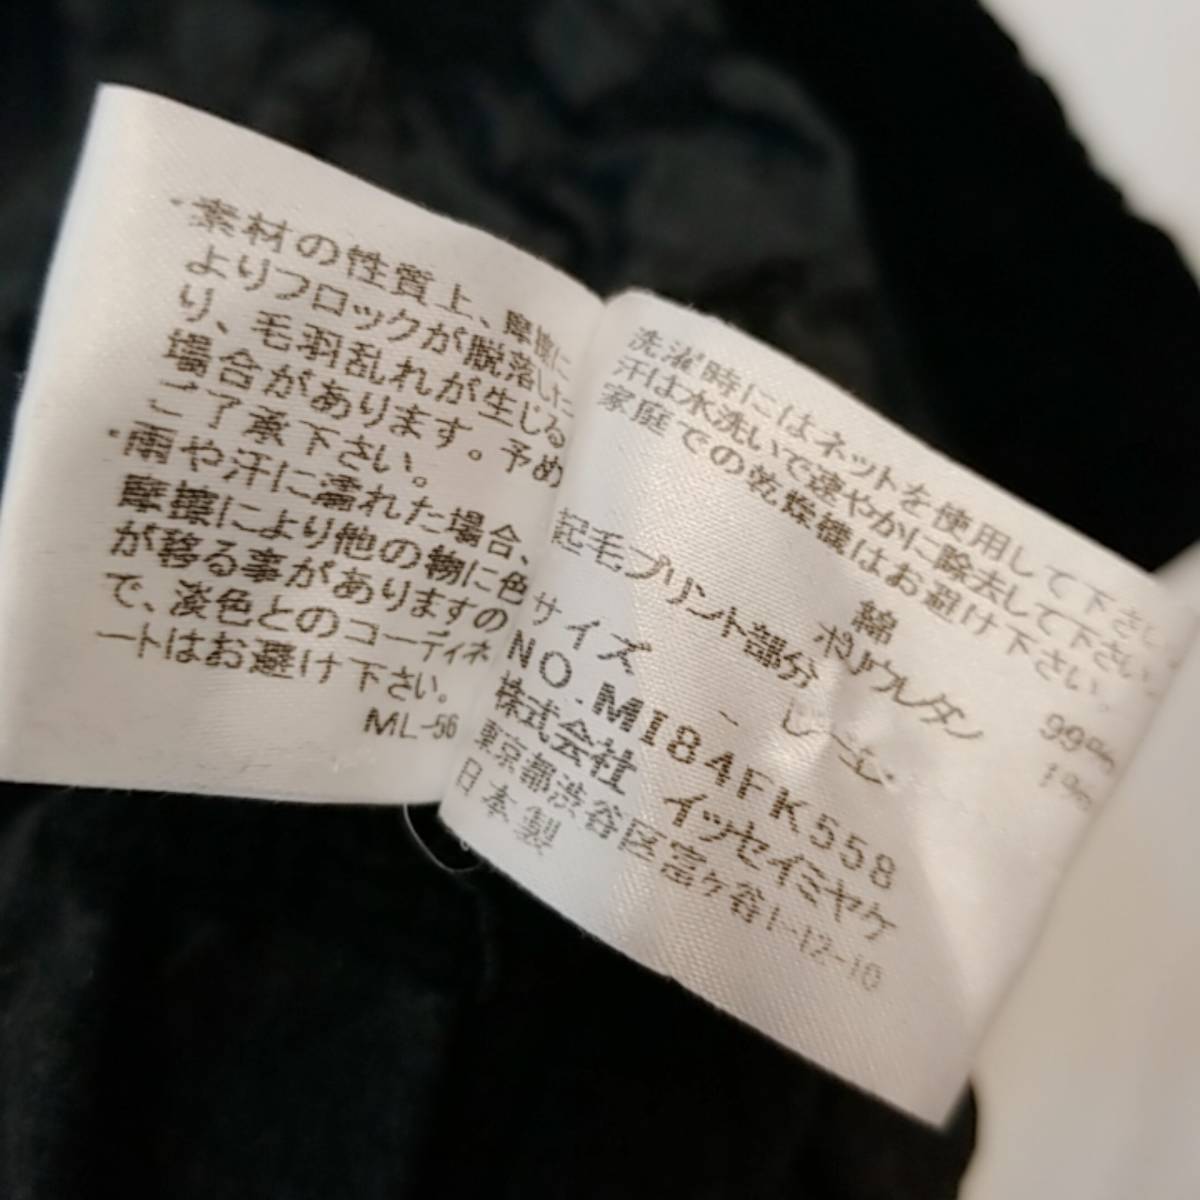 ・素材の性質上、摩擦に
よりフロックが脱落した
り、毛羽乱れが生じる
場合があります。予め
ご了承下さい。
・雨や汗に濡れた場合、
摩擦により他の物に色
が移る事がありますの
で、淡色とのコーディネ
ートはお避け下さい。
ML-56
洗濯時にはネットを使用して下さい
汗は水洗いで速やかに除去して下さい。
家庭での乾燥機はお避け下さい。
綿 99%
ポリウレタン 1%
起毛プリント部分
サイズ
NO.MI84FK558
株式会社 イッセイミヤケ
東京都渋谷区富ヶ谷1-12-10
日本製